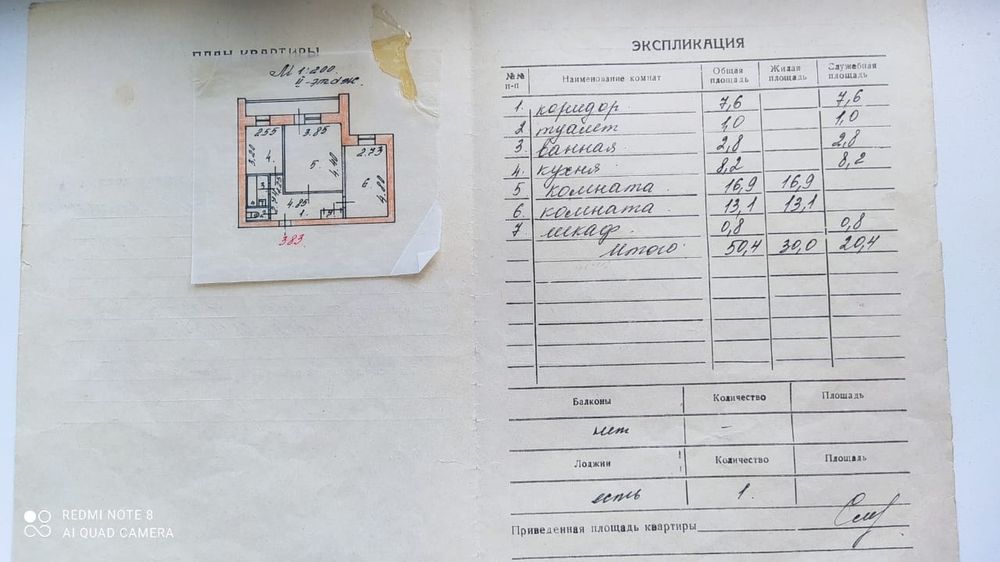 ПЛАН КВАРТИРЫ
М 1:200
II-этаж.
2.55 3.85
2.73
3.20 4. 5. 4.40
6. 4.80
4.85
1.
383
ЭКСПЛИКАЦИЯ
№№ п-п Наименование комнат Общая площадь Жилая площадь Служебная площадь
1. коридор 7,6 7,6
2 туалет 1,0 1,0
3. ванная 2,8 2,8
4. кухня 8,2 8,2
5 комната 16,9 16,9
6. комната 13,1 13,1
7 шкаф 0,8 0,8
Итого 50,4 30,0 20,4
Балконы Количество Площадь
нет –
Лоджии Количество Площадь
есть 1.
Приведенная площадь квартиры
REDMI NOTE 8
AI QUAD CAMERA